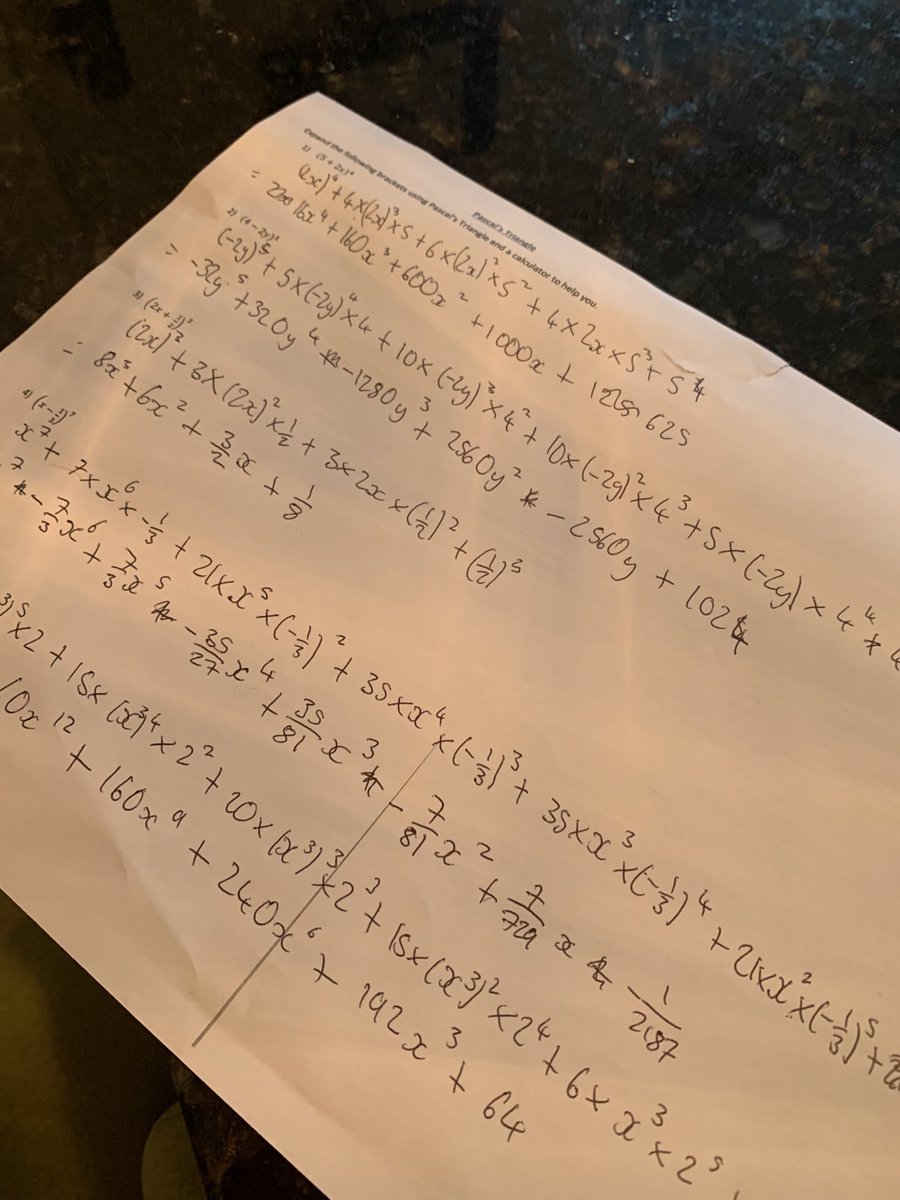 Pascal's Triangle
Expand the following brackets using Pascal's Triangle and a calculator to help you.
1) (5 + 2x)⁴
(2x)⁴ + 4×(2x)³×5 + 6×(2x)²×5² + 4×2x×5³ + 5⁴
= 16x⁴ + 160x³ + 600x² + 1000x + 625
2) (4 − 2y)⁵
(-2y)⁵ + 5×(-2y)⁴×4 + 10×(-2y)³×4² + 10×(-2y)²×4³ + 5×(-2y)×4⁴ +
= -32y⁵ + 320y⁴ - 1280y³ + 2560y² - 2560y + 1024
3) (2x + ½)³
(2x)³ + 3×(2x)²×½ + 3×2x×(½)² + (½)³
= 8x³ + 6x² + 3/2 x + 1/8
4) (x − ⅓)⁷
x⁷ + 7×x⁶×-⅓ + 21×x⁵×(-⅓)² + 35×x⁴×(-⅓)³ + 35×x³×(-⅓)⁴ + 21×x²×(-⅓)⁵ +
⁷ - 7/3 x⁶ + 7/3 x⁵ - 35/27 x⁴ + 35/81 x³ - 7/81 x² + 7/729 x - 1/2187
³)⁵×2 + 15×(x³)⁴×2² + 20×(x³)³×2³ + 15×(x³)²×2⁴ + 6×x³×2⁵
0x¹² + 160x⁹ + 240x⁶ + 192x³ + 64